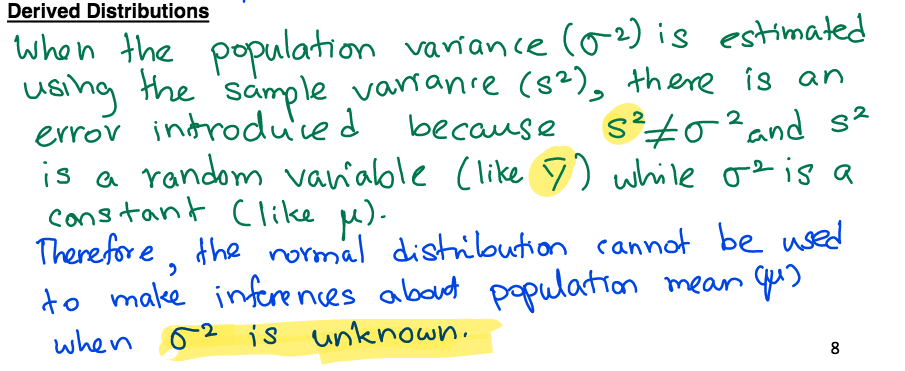 Derived Distributions
When the population variance (σ²) is estimated
using the sample variance (s²), there is an
error introduced because s²≠σ² and s²
is a random variable (like ȳ) while σ² is a
constant (like μ).
Therefore, the normal distribution cannot be used
to make inferences about population mean (μ)
when σ² is unknown.
8